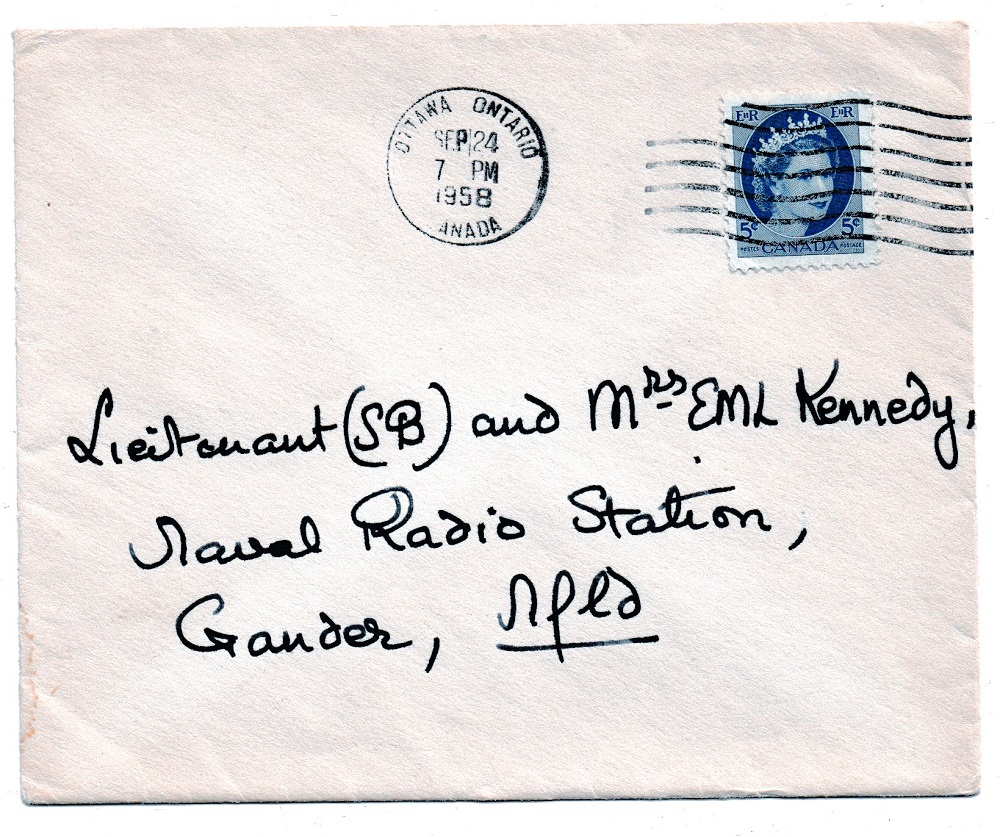 OTTAWA ONTARIO
SEP 24
7 PM
1958
ANADA
EIIR EIIR
5¢ 5¢
POSTES CANADA POSTAGE
Lieutenant (SB) and Mrs EML Kennedy,
Naval Radio Station,
Gander, Nfld